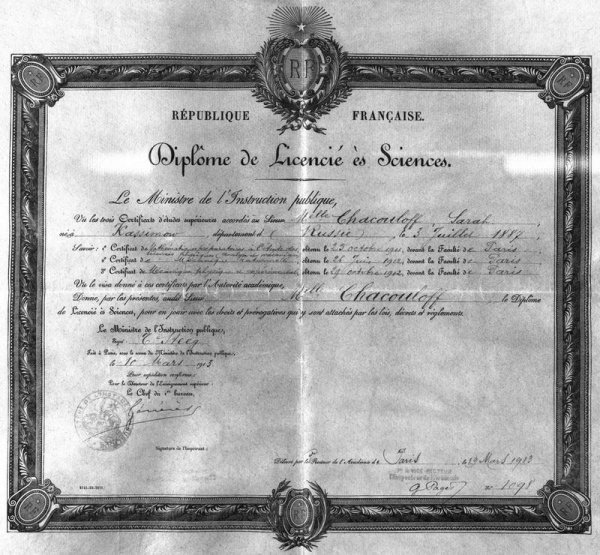 RF
RÉPUBLIQUE FRANÇAISE.
Diplôme de Licencié ès Sciences.
Le Ministre de l'Instruction publique,
Vu les trois Certificats d'études supérieures accordés au Sieur Melle Chacouloff Sarah
né à Kassimow département d (Russie) le 3 Juillet 1887
Savoir: 1° Certificat de Mathématiques préparatoires à l'étude des sciences physiques obtenu le 23 octobre devant la Faculté de Paris
2° Certificat de obtenu le Juin 1912, devant la Faculté de Paris
3° Certificat de Mécanique physique et expérimentale obtenu le octobre 1912, devant la Faculté de Paris
Vu le visa donné à ces certificats par l'Autorité académique,
Donne, par les présentes, audit Sieur Melle Chacouloff le Diplôme
de Licencié ès Sciences, pour en jouir avec les droits et prérogatives qui y sont attachés par les lois, décrets et règlements.
Le Ministre de l'Instruction publique,
Signé T. Steeg
Fait à Paris, sous le sceau du Ministère de l'Instruction publique,
le 10 Mars 1913
Pour expédition conforme:
Pour le Directeur de l'Enseignement supérieur:
Le Chef du 1er bureau,
Signature de l'Impétrant:
Délivré par le Recteur de l'Académie de Paris le 19 Mars 1913
LE VICE-RECTEUR
n° 1098